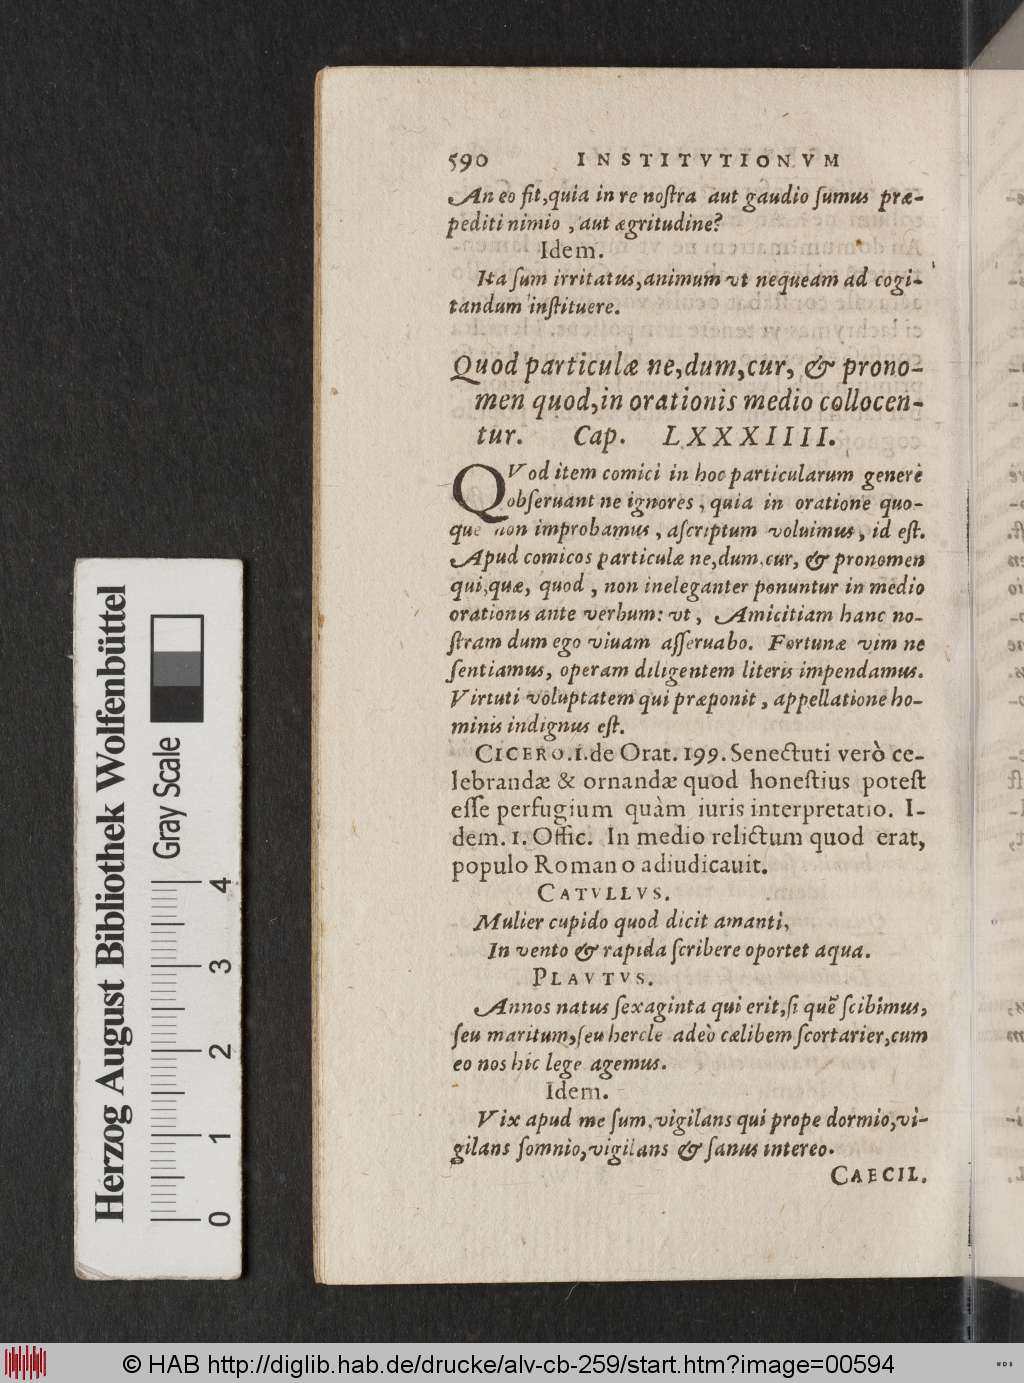 590 INSTITVTIONVM
An eo fit, quia in re nostra aut gaudio sumus præ-
pediti nimio, aut ægritudine?
Idem.
Ita sum irritatus, animum vt nequeam ad cogi-
tandum instituere.
Quod particulæ ne, dum, cur, & prono-
men quod, in orationis medio collocen-
tur. Cap. LXXXIIII.
QVod item comici in hoc particularum genere
obseruant ne ignores, quia in oratione quo-
que non improbamus, ascriptum voluimus, id est.
Apud comicos particulæ ne, dum, cur, & pronomen
qui, quæ, quod, non ineleganter ponuntur in medio
orationis ante verbum: vt, Amicitiam hanc no-
stram dum ego viuam asseruabo. Fortunæ vim ne
sentiamus, operam diligentem literis impendamus.
Virtuti voluptatem qui præponit, appellatione ho-
minis indignus est.
CICERO. 1. de Orat. 199. Senectuti verò ce-
lebrandæ & ornandæ quod honestius potest
esse perfugium quàm iuris interpretatio. I-
dem. 1. Offic. In medio relictum quod erat,
populo Romano adiudicauit.
CATVLLVS.
Mulier cupido quod dicit amanti,
In vento & rapida scribere oportet aqua.
PLAVTVS.
Annos natus sexaginta qui erit, si quẽ scibimus,
seu maritum, seu hercle adeò cælibem scortarier, cum
eo nos hic lege agemus.
Idem.
Vix apud me sum, vigilans qui prope dormio, vi-
gilans somnio, vigilans & sanus intereo.
CAECIL.
Herzog August Bibliothek Wolfenbüttel
Gray Scale
0 1 2 3 4
© HAB http://diglib.hab.de/drucke/alv-cb-259/start.htm?image=00594